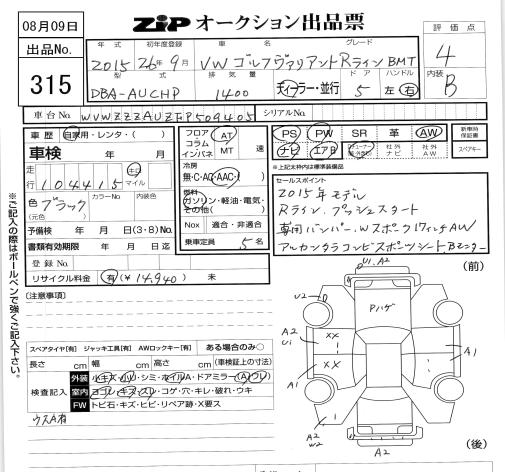 08月09日
ZIP オークション出品票
出品No.
315
年式 初年度登録 車名 グレード
2015 26年9月 VW ゴルフヴァリアントRライン BMT
型式 排気量 ドア ハンドル
DBA-AUCHP 1400 ディーラー・並行 5 左・右
評価点
4
内装
B
車台No. WVWZZZAUZFP509405 シリアルNo.
車歴 自家用・レンタ・( )
車検 年 月
走行 104415 キロ マイル
色 ブラック カラーNo 内装色
(元色)
予備検 年 月 日(3・8)No.
書類有効期限 年 月 日迄
登録No.
リサイクル料金 有(¥14,940) 未
フロア AT
コラム
インパネ MT 速
冷房
無・C・AC・AAC・( )
燃料
ガソリン・軽油・電気・
その他( )
Nox 適合・非適合
乗車定員 5 名
PS PW SR 革 AW
ナビ エアB 社外ナビ 社外AW
新車時保証書
スペアキー
※上記太枠内は標準装備品
セールスポイント
2015年モデル
Rライン プッシュスタート
専用バンパー.Wスポーク17インチAW
アルカンタラコンビスポーツシート.Bモニター
※ご記入の際はボールペンで強くご記入下さい。
[注意事項]
スペアタイヤ[有] ジャッキ工具[有] AWロックキー[有] ある場合のみ○
長さ cm 幅 cm 高さ cm (車検証上の寸法)
検査記入
外装 小キズ・小U・シミ・ホイルA・ドアミラー(A)ワレ)
室内 ヨゴレ・キズ・スレ・コゲ・穴・キレ・破れ・ウキ
FW トビ石・キズ・ヒビ・リペア跡・X要ス
ウスA有
(前)
U1.A2
U2
Pハゲ
A2
U1
XX
XX
A1
A1
A2
W2
A2
(後)